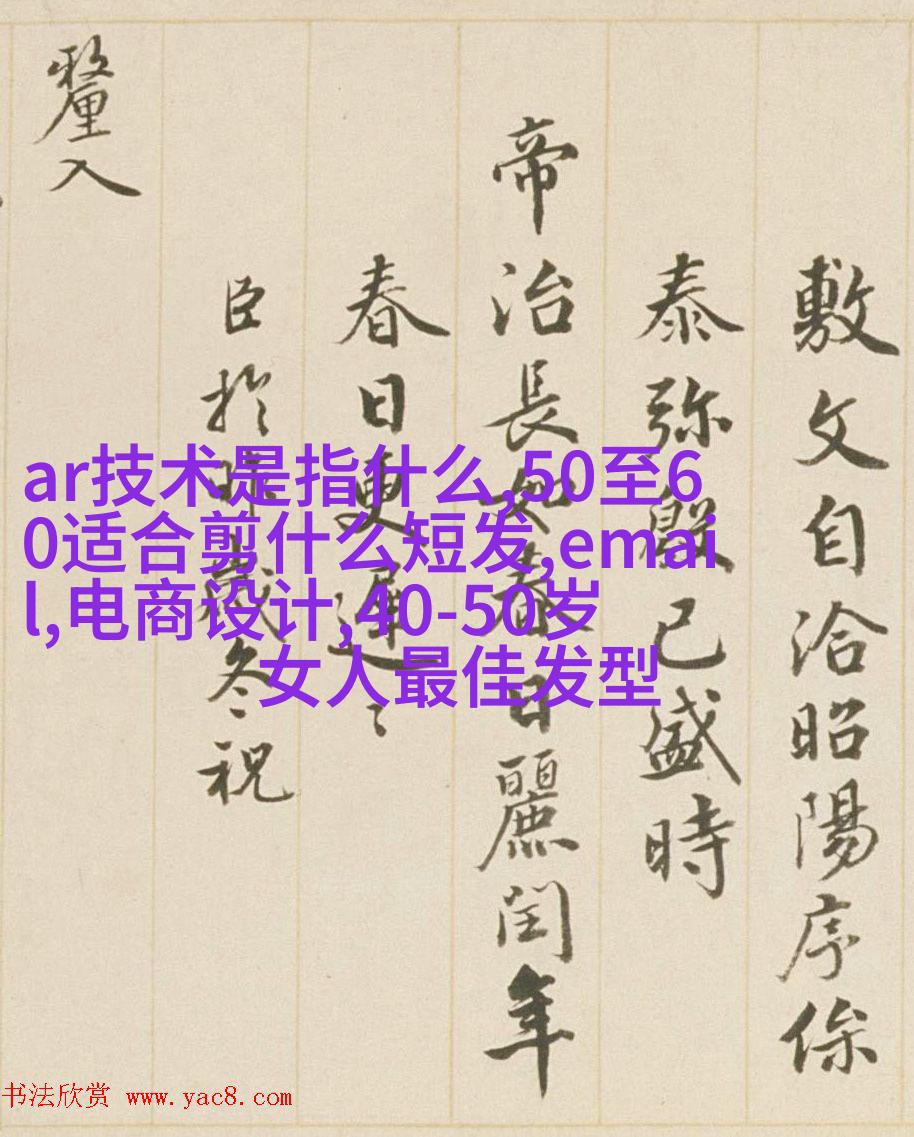 敷文自洽昭陽序
泰弥殷已盛時
帝治長如春日麗閏年
春日更遲〻
臣於昨歲冬祝
釐入
ar技术是指什么,50至6
0适合剪什么短发,emai
l,电商设计,40-50岁
女人最佳发型
书法欣赏 www.yac8.com